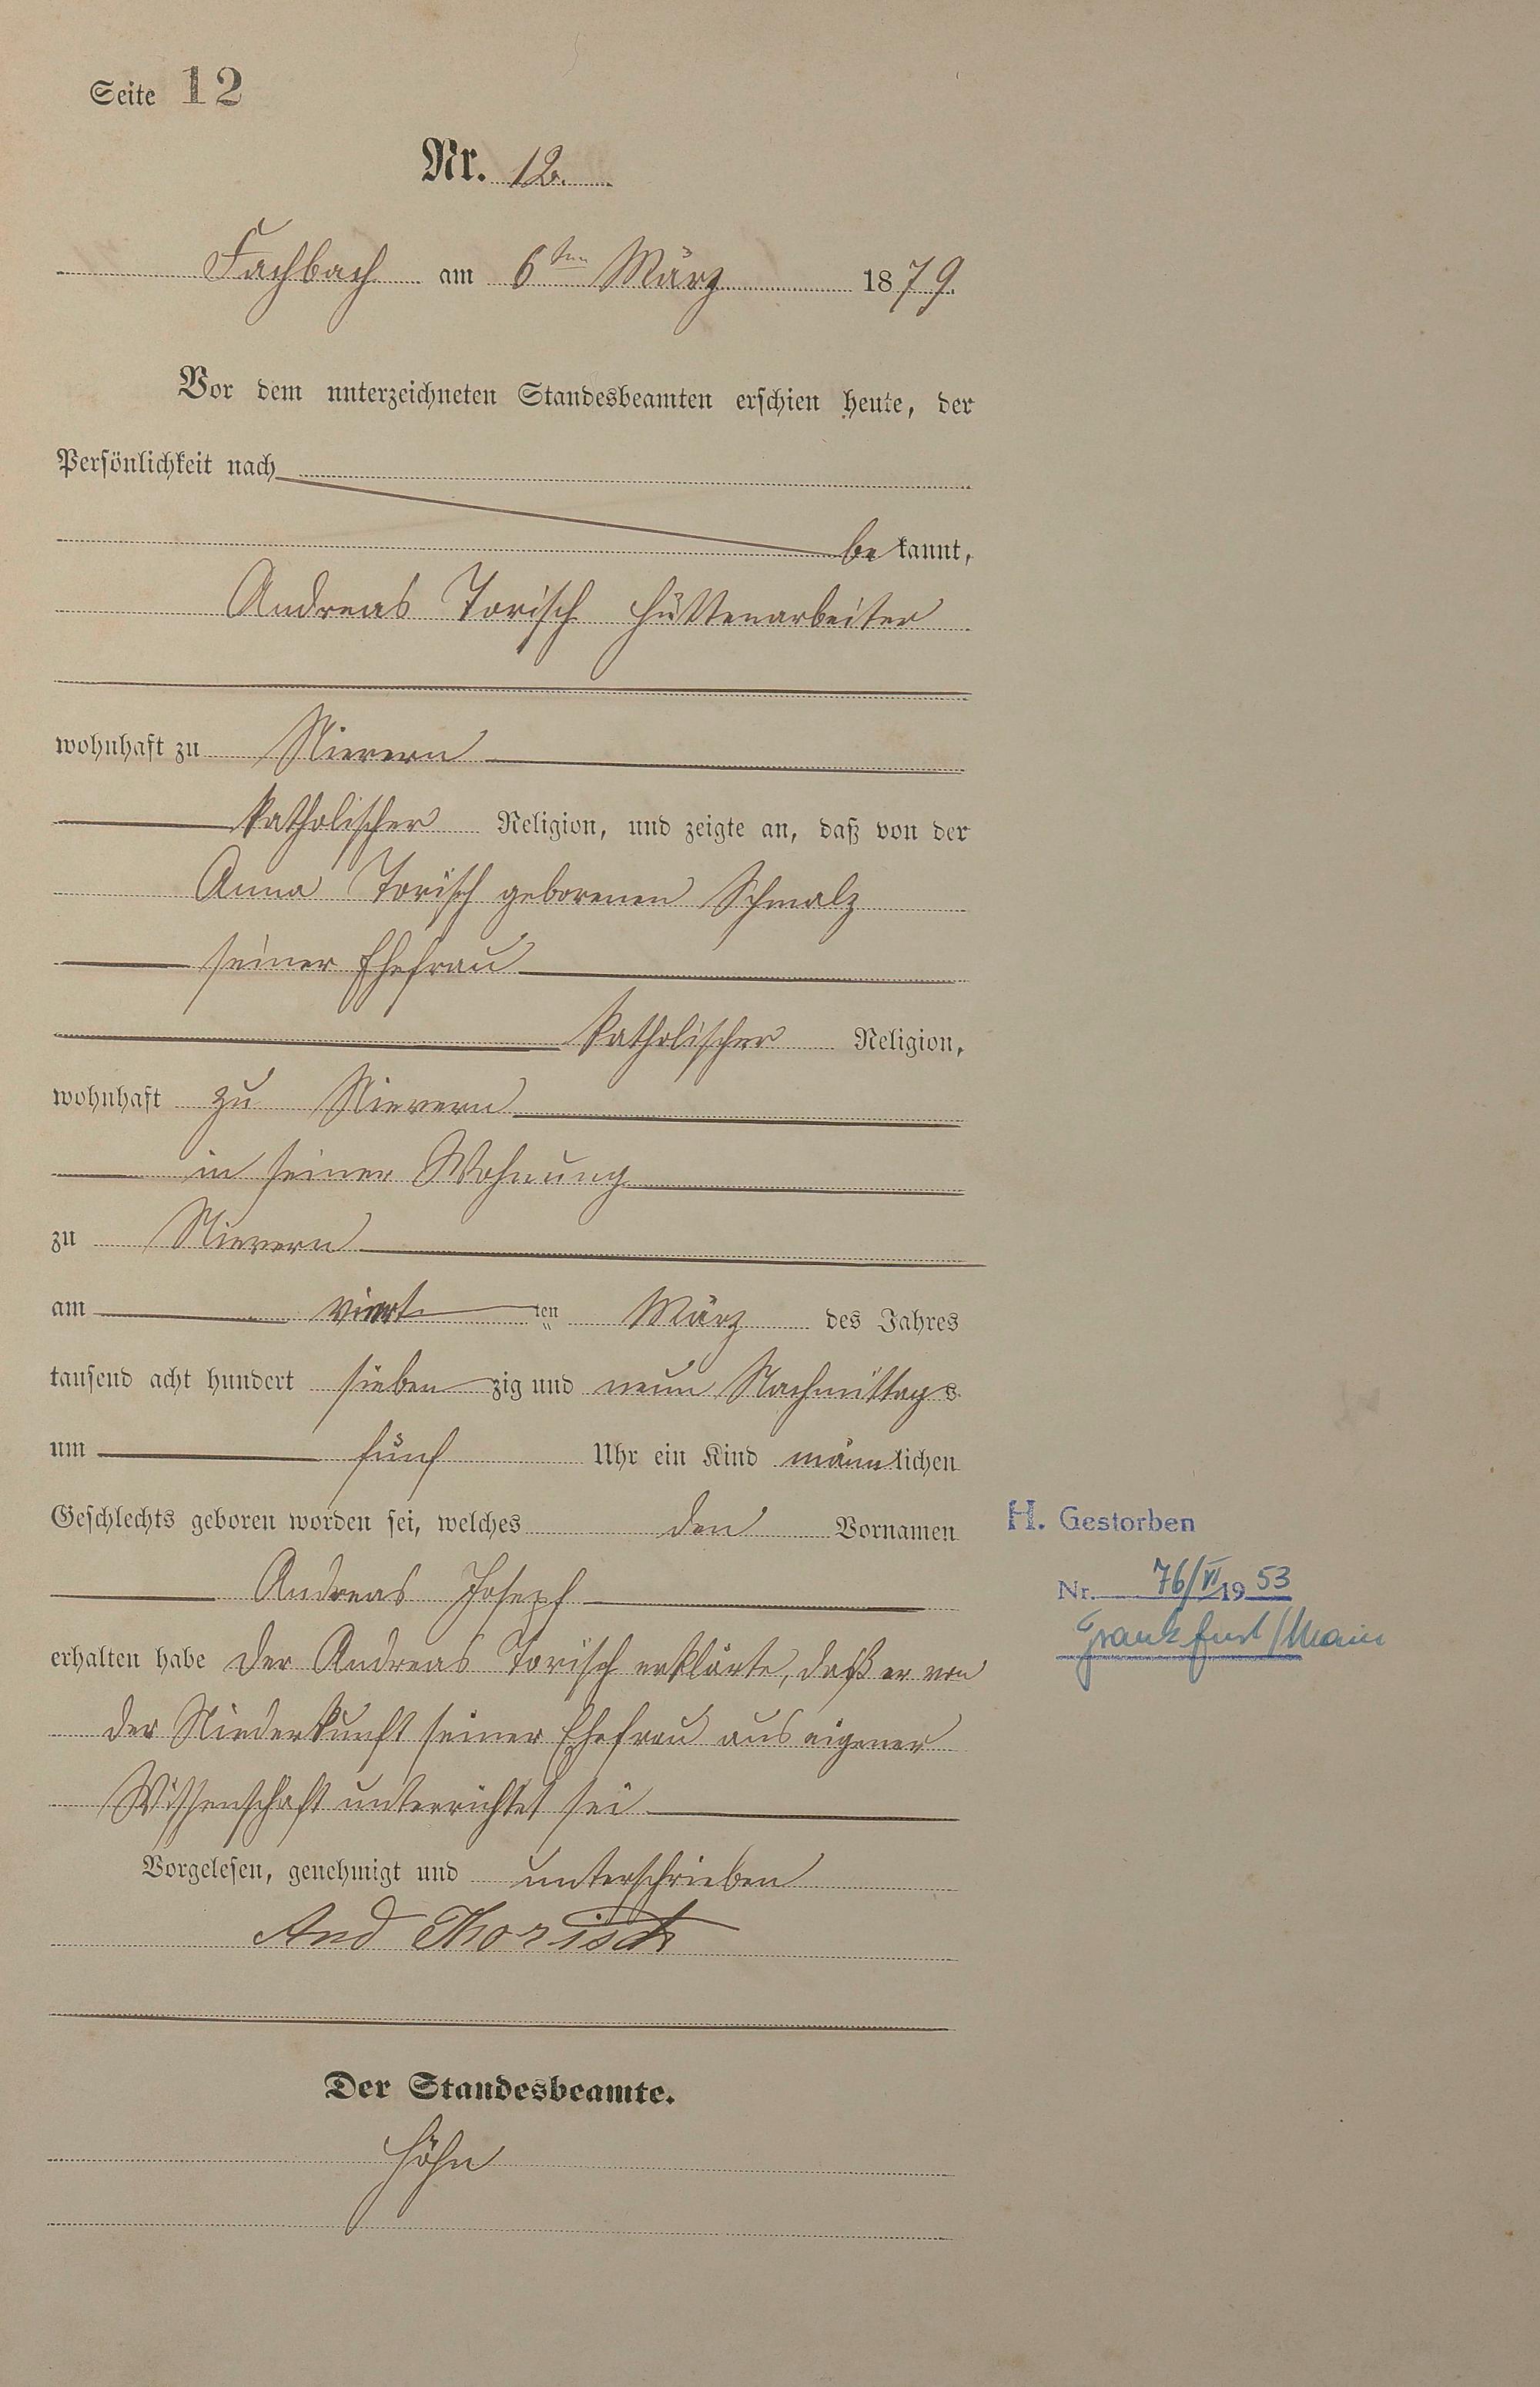 Seite 12
Nr. 12.
Fachbach am 6ten März 1879.
Vor dem unterzeichneten Standesbeamten erschien heute, der
Persönlichkeit nach
be kannt,
Andreas Torisch Hüttenarbeiter
wohnhaft zu Nievern
katholischer Religion, und zeigte an, daß von der
Anna Torisch geborenen Schmalz
seiner Ehefrau
katholischer Religion,
wohnhaft zu Nievern
in seiner Wohnung
zu Nievern
am viert ten März des Jahres
tausend acht hundert sieben zig und neun Nachmittags
um fünf Uhr ein Kind männlichen
Geschlechts geboren worden sei, welches den Vornamen
H. Gestorben
Andreas Josepf
Nr. 76/VI 1953
Frankfurt/Main
erhalten habe Der Andreas Torisch erklärte, daß er von
der Niederkunft seiner Ehefrau aus eigener
Wissenschaft unterrichtet sei
Vorgelesen, genehmigt und unterschrieben
And Thorisch
Der Standesbeamte.
Höhn